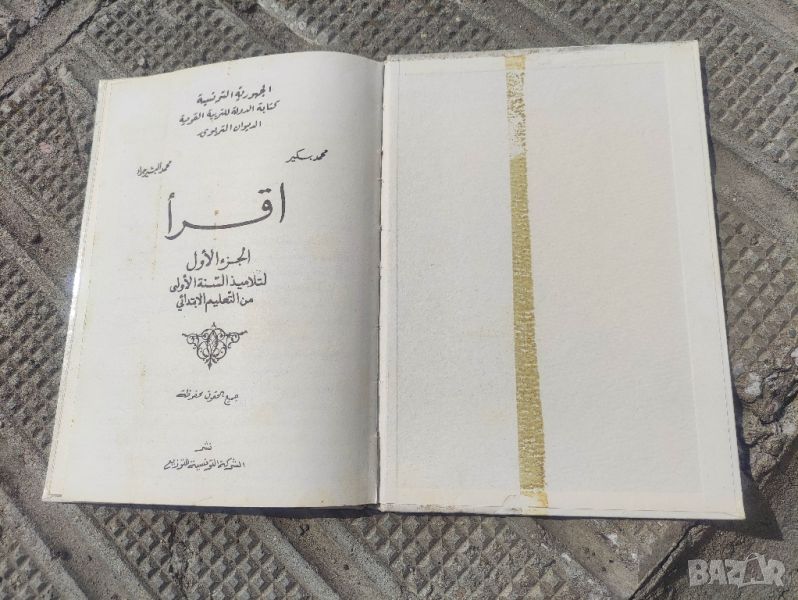 الجمهورية التونسية
كتابة الدولة للتربية القومية
الديوان التربوي
محمد بسكير
محمد البشير
اقرأ
الجزء الأول
لتلاميذ السّنة الأولى
من التعليم الابتدائي
جميع الحقوق محفوظة
نشر
الشركة التونسية للتوزيع
BAZAR